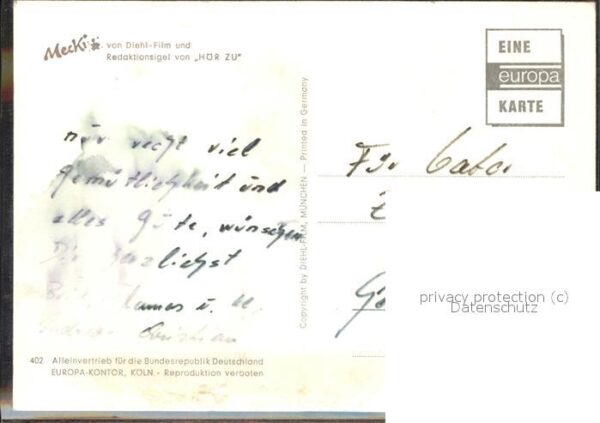 Mecki
von Diehl-Film und
Redaktionsigel von „HÖR ZU"
EINE
europa
KARTE
nur recht viel
Gemütlichkeit und
alles Gute, wünschen
herzlichst
u.
Für
Copyright by DIEHL-FILM, MÜNCHEN — Printed in Germany
402 Alleinvertrieb für die Bundesrepublik Deutschland
EUROPA-KONTOR, KÖLN - Reproduktion verboten
privacy protection (c)
Datenschutz